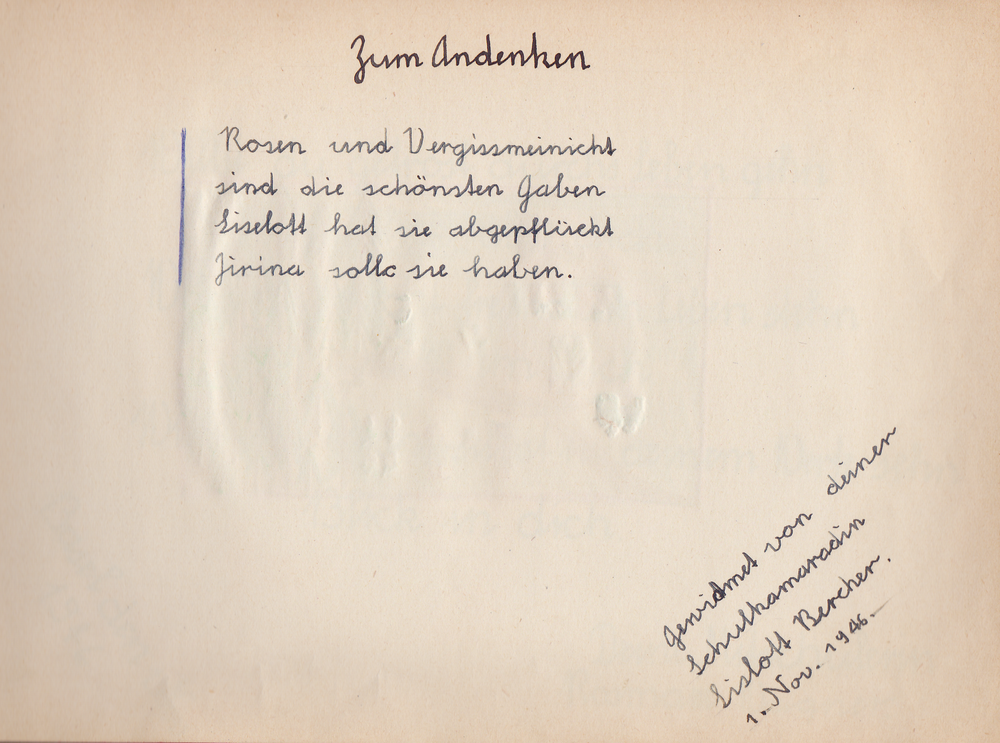 Zum Andenken
Rosen und Vergissmeinicht
sind die schönsten Gaben
Liselott hat sie abgepflückt
Jirina solle sie haben.
Gewidmet von deiner
Schulkamaradin
Lislott Bercher.
1. Nov. 1946.